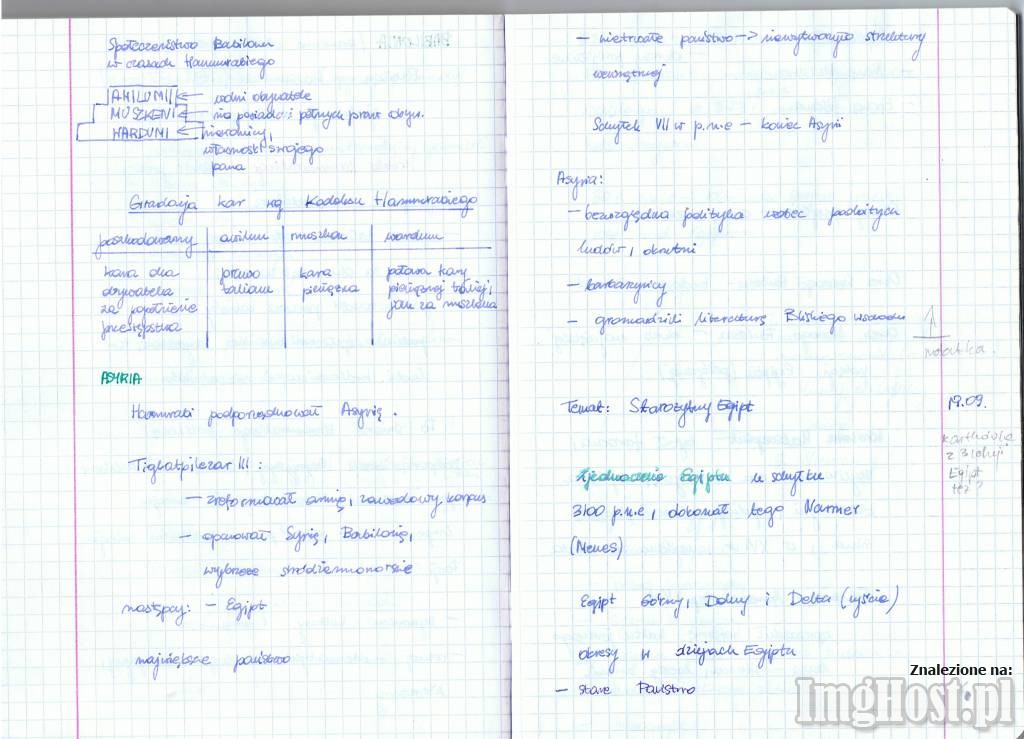 Społeczeństwo Babilonu
w czasach Hammurabiego
AWILUMI ← wolni obywatele
MUSZKENI ← nie posiadali pełnych praw obyw.
WARDUMI ← niewolnicy,
własność swojego
pana
Gradacja kar wg Kodeksu Hammurabiego
poszkodowany awilum muszken wardum
kara dla prawo kara połowa kary
obywatela talionu pieniężna pieniężnej takiej,
za popełnienie jak za muszkena
przestępstwa
ASYRIA
Hammurabi podporządkował Asyrię.
Tiglatpilezar III:
— zreformował armię, zawodowy korpus
— opanował Syrię, Babilonię,
wybrzeże śródziemnomorskie
następcy: — Egipt
największe państwo
— nietrwałe państwo -> niewytworzyło struktury
wewnętrznej
Schyłek VII w p.n.e — koniec Asyrii
Asyria:
— bezwzględna polityka wobec podbitych
ludów, okrutni
— barbarzyńcy
— gromadzili literaturę Bliskiego wschodu
↑
notatka.
Temat: Starożytny Egipt
19.09.
kartkówka
z 3 lekcji
Egipt
też?
Zjednoczenie Egiptu u schyłku
3100 p.n.e, dokonał tego Narmer
(Menes)
Egipt Górny, Dolny i Delta (ujście)
okresy w dziejach Egiptu
— stare Państwo
Znalezione na:
ImgHost.pl